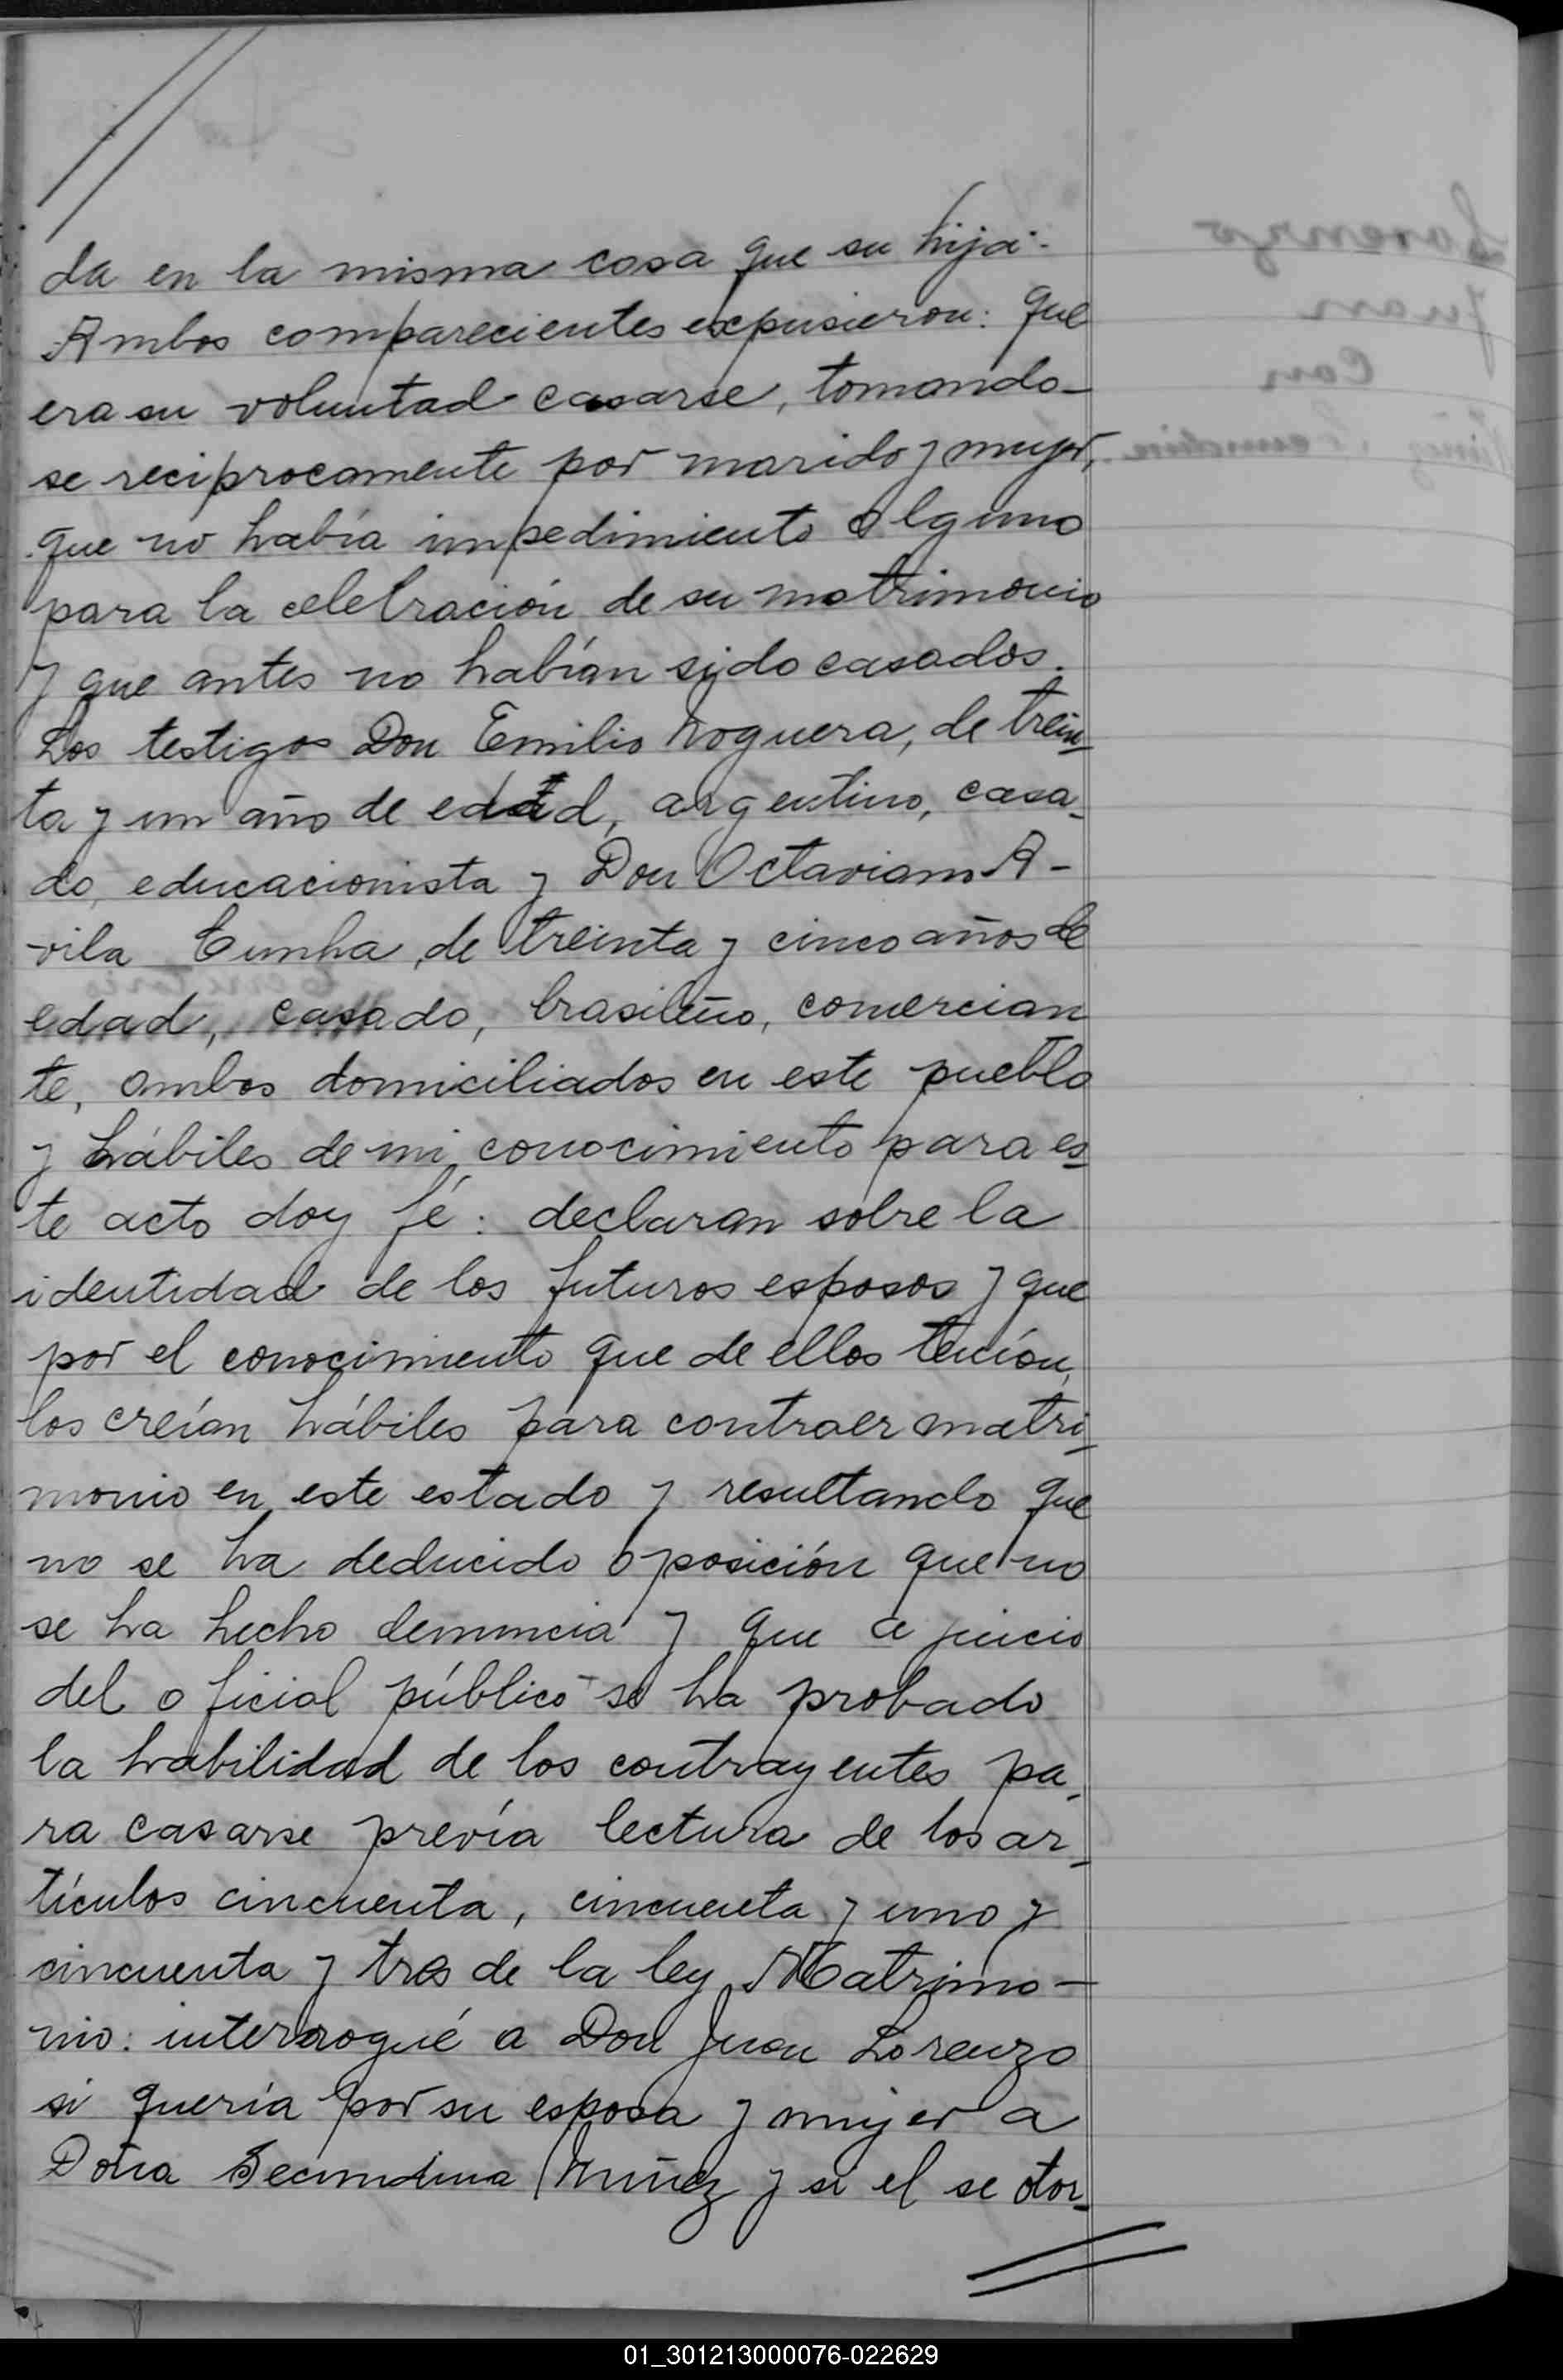 da en la misma casa que su hija.-
Ambos comparecientes expusieron: que
era su voluntad casarse, tomando-
se reciprocamente por marido y mujer,
que no había impedimiento alguno
para la celebración de su matrimonio
y que antes no habían sido casados.
Los testigos Don Emilio Noguera, de trein-
ta y un año de edad, argentino, casa-
do, educacionista y Don Octaviam A-
vila Cunha, de treinta y cinco años de
edad, casado, brasileño, comercian
te, ambos domiciliados en este pueblo
y hábiles de mi conocimiento para es-
te acto doy fé: declaran sobre la
identidad de los futuros esposos y que
por el conocimiento que de ellos tenían,
los creían hábiles para contraer matri-
monio en este estado y resultando que
no se ha deducido oposición que no
se ha hecho denuncia y que a juicio
del oficial público se ha probado
la habilidad de los contrayentes pa-
ra casarse prevía lectura de los ar-
tículos cincuenta, cincuenta y uno y
cincuenta y tres de la ley Matrimo-
nio: interrogué a Don Juan Lorenzo
si quería por su esposa y mujer a
Doña Secundina Nuñez y si el se otor-
01_301213000076-022629